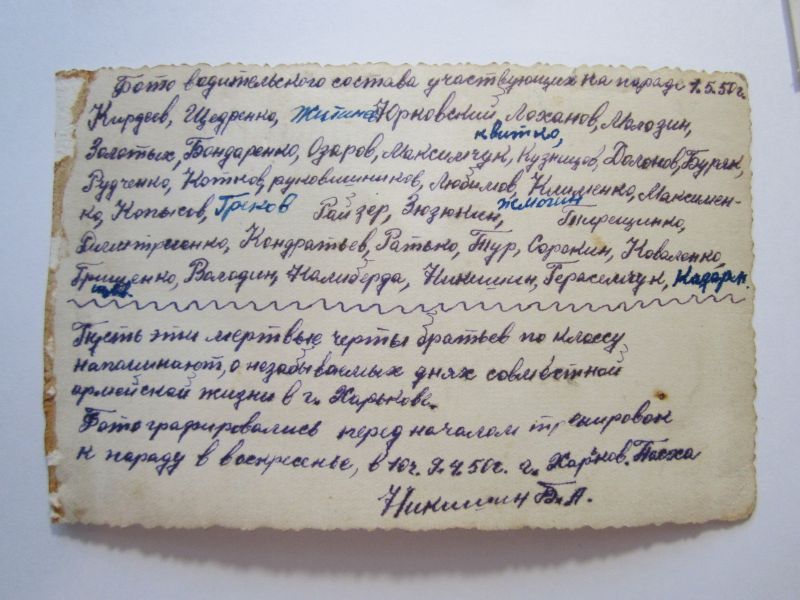 Фото водительского состава участвующих на параде 1.5.50г.
Кирдеев, Щедренко, Житина Юрковский, Лоханов, Малозин,
квитко,
Золотых, Бондаренко, Озаров, Максимчук, Кузнецов, Долонов, Буряк,
Рудченко, Котков, руковишников, Любимов, Клименко, Максимен-
ко, Копысов, Греков Райзер, Зюзюкин, жмогин Терещенко,
Димитриенко, Кондратьев, Ратько, Тур, Сорокин, Коваленко,
Грищенко, Володин, Калиберда, Никишин, Герасемчук,
Пусть эти мертвые черты братьев по классу
напоминают о незабываемых днях совместной
армейской жизни в г. Харькове.
Фотографировались перед началом тренировок
к параду в воскресенье, в 10ч. 9.4.50г. г. Харьков. Пасха
Никишин В.А.